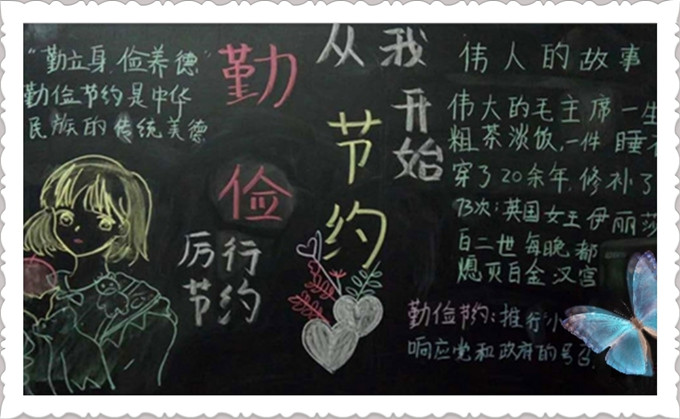 "勤立身,俭养德"
勤俭节约是中华
民族的传统美德
勤俭
厉行
节约
从我
开始
节约
伟人的故事
伟大的毛主席一生
粗茶淡饭,一件睡
穿了20余年,修补了
73次;英国女王伊丽莎
白二世每晚都
熄灭白金汉宫
勤俭节约:推行"小
响应党和政府的号召.